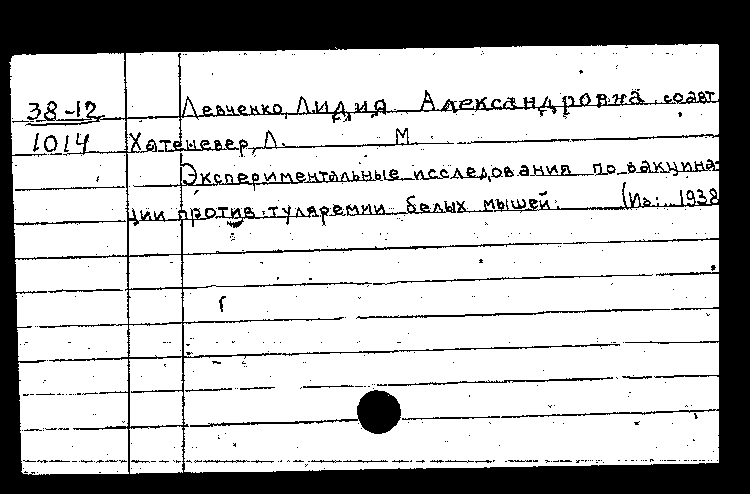 38-12 Левченко, Лидия Александровна, соавт.
1014 Хатеневер, Л. М.
Экспериментальные исследования по вакцина-
ции против туляремии белых мышей. (Из: 1938